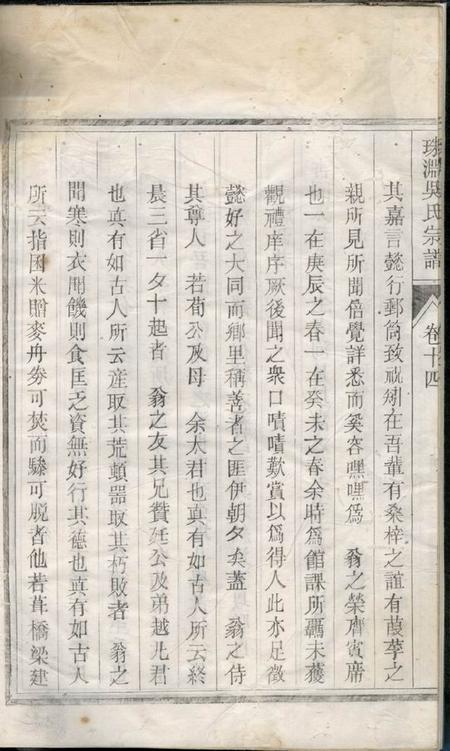 珠淵吳氏宗譜
卷十四
其嘉言懿行郵筒致祝矧在吾輩有桑梓之誼有葭莩之
親所見所聞倍覺詳悉而奚容嘿嘿爲 翁之榮膺寅席
也一在庚辰之春一在癸未之春余時爲館課所羈未獲
觀禮庠序厥後聞之衆口嘖嘖歎賞以爲得人此亦足徵
懿好之大同而鄉里稱善者之匪伊朝夕矣蓋 翁之侍
其尊人 若荀公及母 余太君也真有如古人所云終
晨三省一夕十起者 翁之友其兄贊廷公及弟越凡君
也真有如古人所云産取其荒頓器取其朽敗者 翁之
聞寒則衣聞饑則食匡乏資無好行其德也真有如古人
所云指囷米贈麥舟劵可焚而驂可脫者他若葺橋梁建